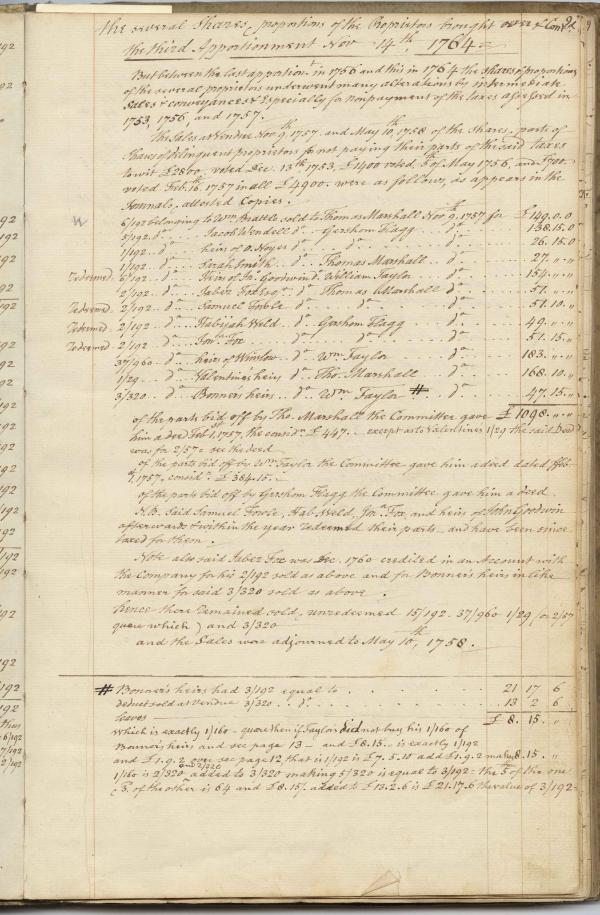 the several Shares & proportions of the Proprietors brought over & Cont.d
the third Apportionment Nov 14th 1764
But between the last apportiont in 1756 and this in 1764 the shares & proportions
of the several proprietors underwent many alterations by intermediate
Sales & conveyances & Especially for Nonpayment of the taxes assessed in
1753, 1756, and 1757.
The Sales at Vendue Nov 9th 1757 and May 10th 1758 of the Shares, parts of
Shares of delinquent proprietors for not paying their parts of the said Taxes
to wit £2800 voted Dec. 13th 1753, £1400 voted 5th of May 1756, and £700
voted Feb. 16th 1757 in all £4900 were as follows, as appears in the
Journals, attested Copies.
6/192 belonging to Wm Brattle sold to Thomas Marshall Nov 9th 1757 for £149.0.0
5/192 do Jacob Wendell do Gershom Flagg do 138.15.0
1/192 do heirs of O. Noyes do do do 26.15.0
1/192 do Sarah Smith do Thomas Marshall do 27 " "
Redeemed 6/192 do Heirs of Jn. Goodwin do William Taylor do 154. " "
2/192 do Jabez Fox Esqr do Thomas Marshall do 51. " "
Redeemed 2/192 do Samuel Fowle do do do 51.10. "
Redeemed 2/192 do Habijah Weld do Gershom Flagg do 49. " "
Redeemed 2/192 do Jonathan Fox do do do 51.15. "
37/960 do heirs of Winslow do Wm Taylor do 183. " "
1/29 do Valentine's heirs do Tho. Marshall do 168.10. "
3/320 do Bonner's heirs do Wm Taylor # do 47.15. "
of the parts bid off by Tho. Marshall the Committee gave £1098. " "
him a deed Feb 1st, 1757, the considn £447 except as to Valentines 1/29 the said Deed
was for 2/57 see the deed
of the parts bid off by Wm Taylor the Committee gave him a deed dated Feb
1, 1757, considn £384.15.
of the parts bid off by Gershom Flagg the Committee gave him a deed
N.B. Said Samuel Fowle, Hab. Weld, Jon. Fox and heirs of John Goodwin
afterwards & within the year redeemed their parts and have been since
taxed for them.
Note also said Jabez Fox was Dec. 1760 credited in an Account with
the Company for his 2/192 sold as above and for Bonner's heirs in like
manner for said 3/320 sold as above.
hence there remained sold, unredeemed 15/192. 37/960 1/29 (or 2/57
quere which) and 3/320
and the Sales were adjourned to May 10th, 1758.
# Bonner's heirs had 3/192 equal to 21 17 6
deduct sold at Vendue 3/320 do 13 2 6
leaves £ 8. 15. "
which is exactly 1/160 quere then if Taylor did not buy his 1/160 of
Bonner's heirs and see page 13 and £8.15 is exactly 1/192
and £1.9.2 over see page 12, that is 1/192 is £7.5.10 add £1.9.2 makes 8.15. "
1/160 is 2/320 and 2/320 added to 3/320 making 5/320 is equal to 3/192 = the 5 of the one
& 3 of the other is 64 and £8.15/ added to £13.2.6 is £21.17.6 the value of 3/192